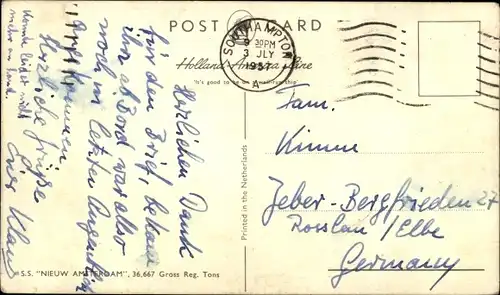 POST CARD
Holland-America Line
"It's good to be on a
SOUTHAMPTON
9 30PM
3 JLY
1957
A
Herzlichen Dank
für den Brief, bekam
ihn ab Bord war also
noch im letzten Augenblick
angekommen
Konnte leider nicht
mehr an Land.
Herzliche Grüße
Euer Klaus
Printed in the Netherlands
Fam.
Kimme
Jeber-Bergfrieden 27
Rosslau / Elbe
Germany
S.S. "NIEUW AMSTERDAM", 36,667 Gross Reg. Tons